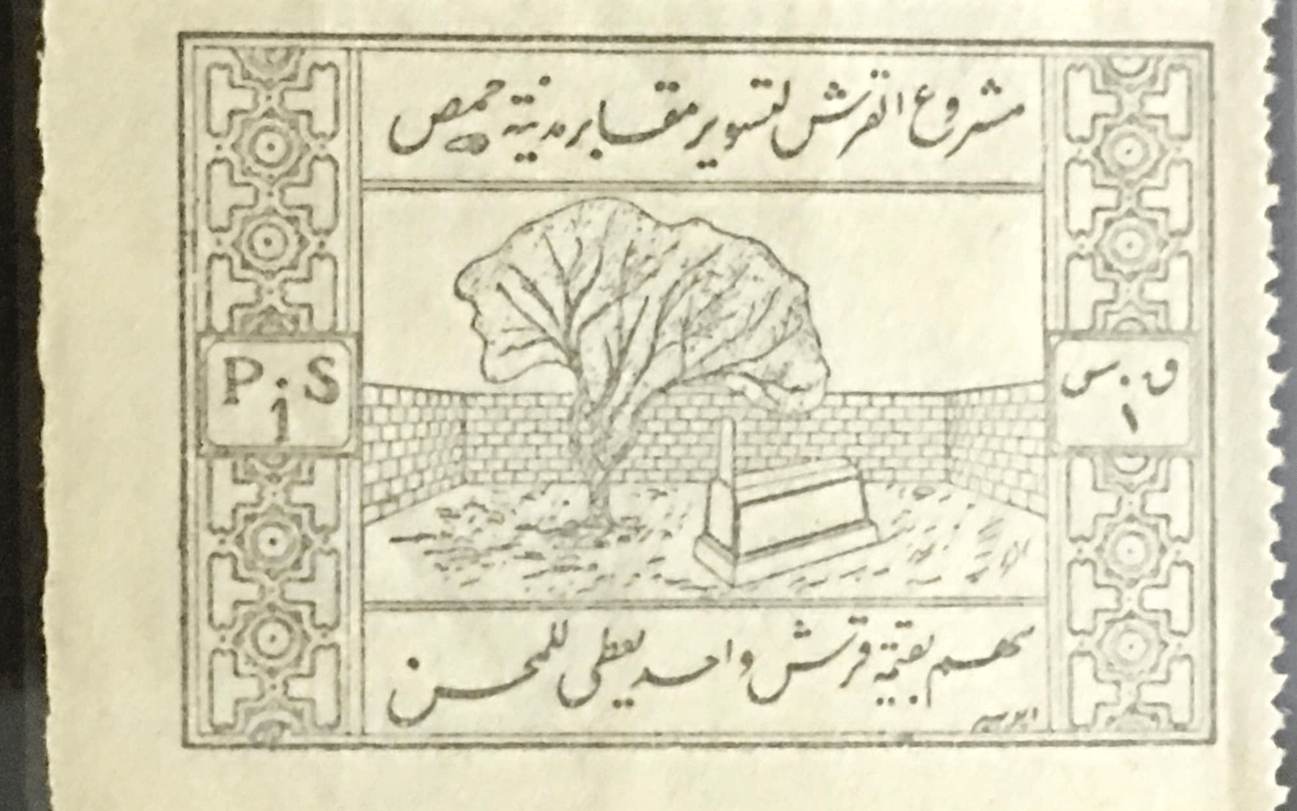 مشروع القرش لتسوير مقابر مدينة حمص
P.S
1
ق.س
١
سهم بقيمة قرش واحد يعطى للمحسن